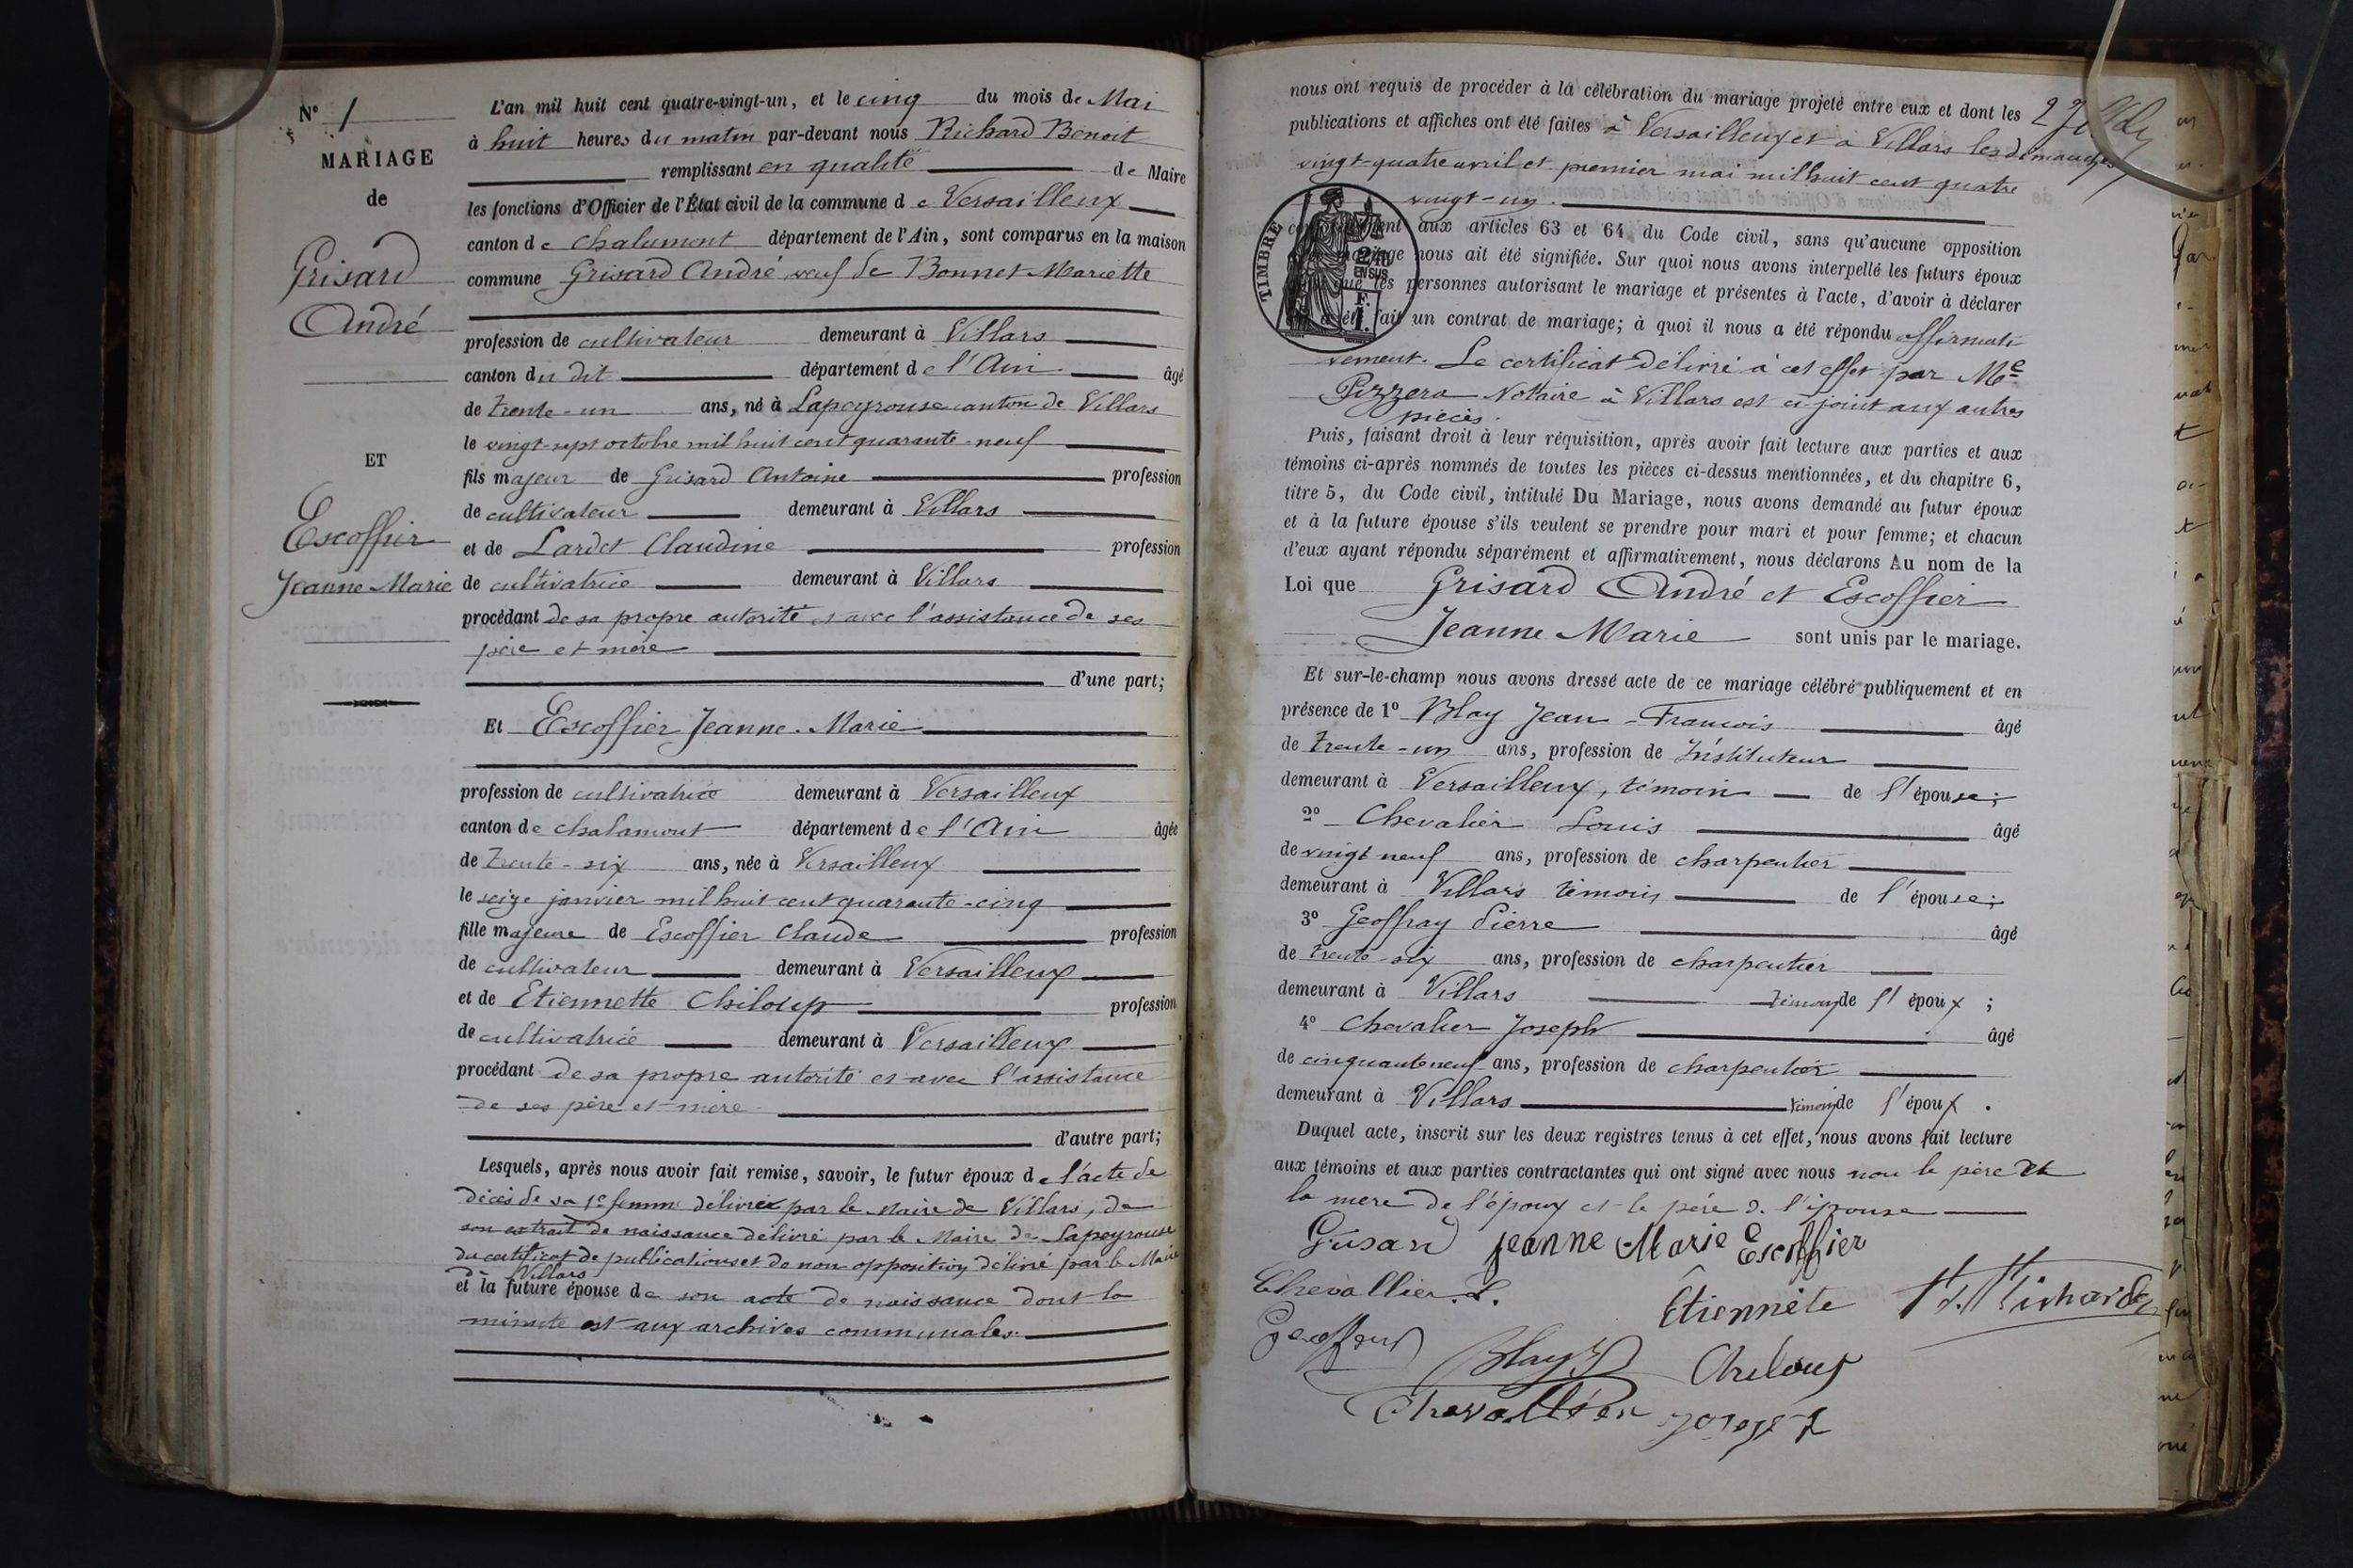 N° 1
MARIAGE
de
Grisard
André
ET
Escoffier
Jeanne Marie
L'an mil huit cent quatre-vingt-un, et le cinq du mois de Mai
à huit heures du matin par-devant nous Richard Benoit
remplissant en qualité de Maire
les fonctions d'Officier de l'État civil de la commune de Versailleux
canton de Chalamont département de l'Ain, sont comparus en la maison
commune Grisard André veuf de Bonnet Mariette
profession de cultivateur demeurant à Villars
canton du dit département de l'Ain âgé
de trente-un ans, né à Lapeyrouse canton de Villars
le vingt-sept octobre mil huit cent quarante-neuf
fils majeur de Grisard Antoine profession
de cultivateur demeurant à Villars
et de Lardet Claudine profession
de cultivatrice demeurant à Villars
procédant de sa propre autorité et avec l'assistance de ses
père et mère
d'une part;
Et Escoffier Jeanne-Marie
profession de cultivatrice demeurant à Versailleux
canton de Chalamont département de l'Ain âgée
de trente-six ans, née à Versailleux
le seize janvier mil huit cent quarante-cinq
fille majeure de Escoffier Claude profession
de cultivateur demeurant à Versailleux
et de Etiennette Chiloup profession
de cultivatrice demeurant à Versailleux
procédant de sa propre autorité et avec l'assistance
de ses père et mère
d'autre part;
Lesquels, après nous avoir fait remise, savoir, le futur époux de l'acte de
décès de sa 1e femme délivré par le Maire de Villars, de
son extrait de naissance délivré par le Maire de Lapeyrouse
du certificat de publications et de non opposition délivré par le Maire
de Villars
et la future épouse de son acte de naissance dont la
minute est aux archives communales.
nous ont requis de procéder à la célébration du mariage projeté entre eux et dont les
publications et affiches ont été faites à Versailleux et à Villars les dimanches
vingt-quatre avril et premier mai mil huit cent quatre
vingt-un.
aux articles 63 et 64 du Code civil, sans qu'aucune opposition
mariage nous ait été signifiée. Sur quoi nous avons interpellé les futurs époux
que les personnes autorisant le mariage et présentes à l'acte, d'avoir à déclarer
a été fait un contrat de mariage; à quoi il nous a été répondu affirmati
vement. Le certificat délivré à cet effet par Me
Pizzera Notaire à Villars est ci-joint aux autres
pièces.
TIMBRE
2/10
EN SUS
Puis, faisant droit à leur réquisition, après avoir fait lecture aux parties et aux
témoins ci-après nommés de toutes les pièces ci-dessus mentionnées, et du chapitre 6,
titre 5, du Code civil, intitulé Du Mariage, nous avons demandé au futur époux
et à la future épouse s'ils veulent se prendre pour mari et pour femme; et chacun
d'eux ayant répondu séparément et affirmativement, nous déclarons Au nom de la
Loi que Grisard André et Escoffier
Jeanne Marie sont unis par le mariage.
Et sur-le-champ nous avons dressé acte de ce mariage célébré publiquement et en
présence de 1° Blay Jean-François âgé
de trente-un ans, profession de Instituteur
demeurant à Versailleux, témoin de l'épouse;
2° Chevalier Louis âgé
de vingt neuf ans, profession de charpentier
demeurant à Villars témoin de l'épouse;
3° Geoffray Pierre âgé
de trente-six ans, profession de charpentier
demeurant à Villars témoin de l'époux;
4° Chevalier Joseph âgé
de cinquante neuf ans, profession de charpentier
demeurant à Villars témoin de l'époux.
Duquel acte, inscrit sur les deux registres tenus à cet effet, nous avons fait lecture
aux témoins et aux parties contractantes qui ont signé avec nous non le père et
la mère de l'époux et le père de l'épouse
Grisard Jeanne Marie Escoffier
Chevallier. L. Etiennete Richard
Geoffray Blay Chiloup
Chevallier Joseph